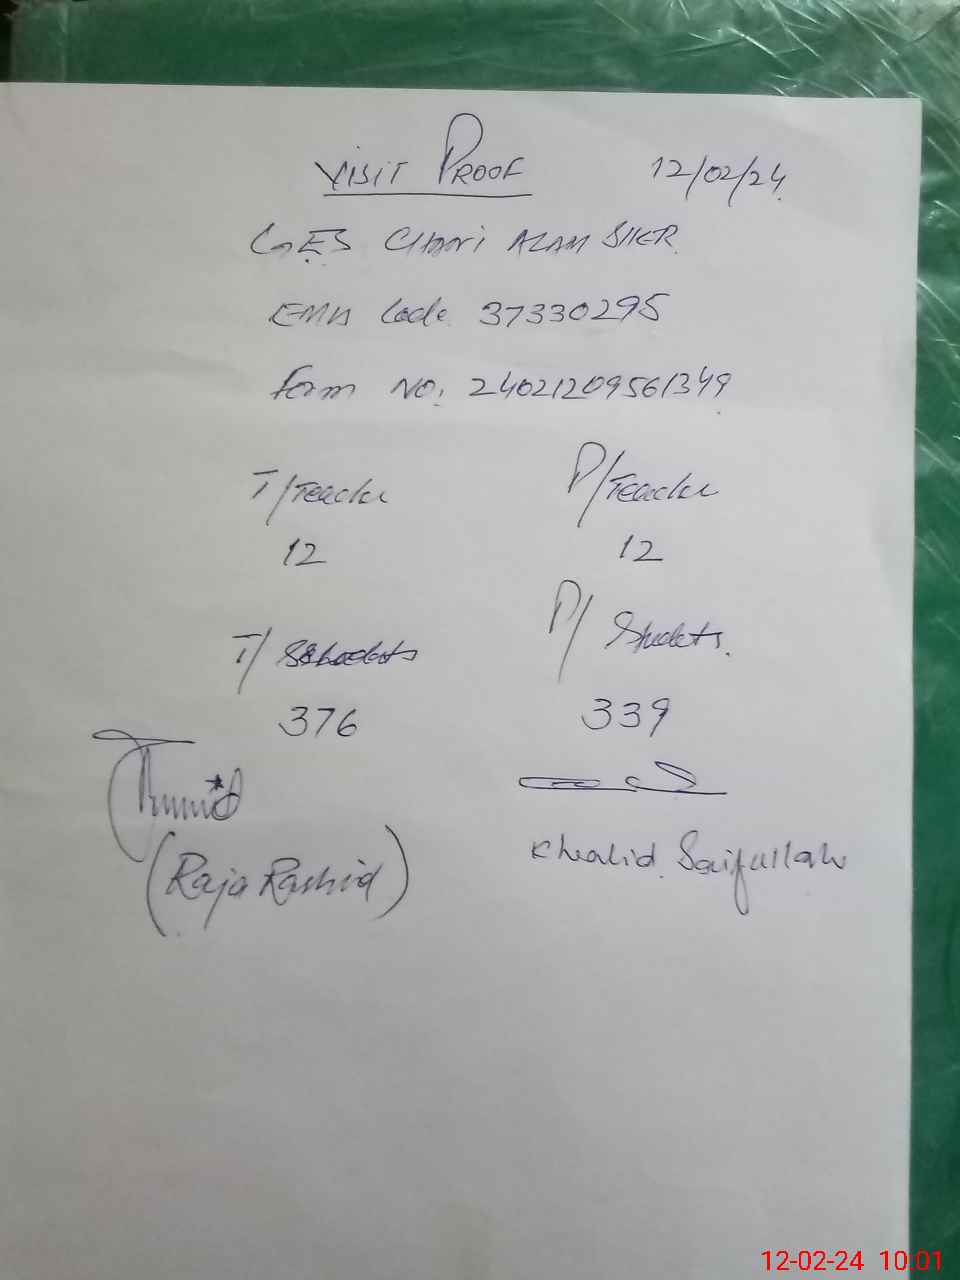 VISIT PROOF 12/02/24
GES Chhni ALAM SHER
EMIS Code 37330295
Form NO: 24021209561349
T/Teacher P/Teacher
12 12
T/Students P/Students.
376 339
(Raja Rashid) Khalid Saifullah
12-02-24 10:01